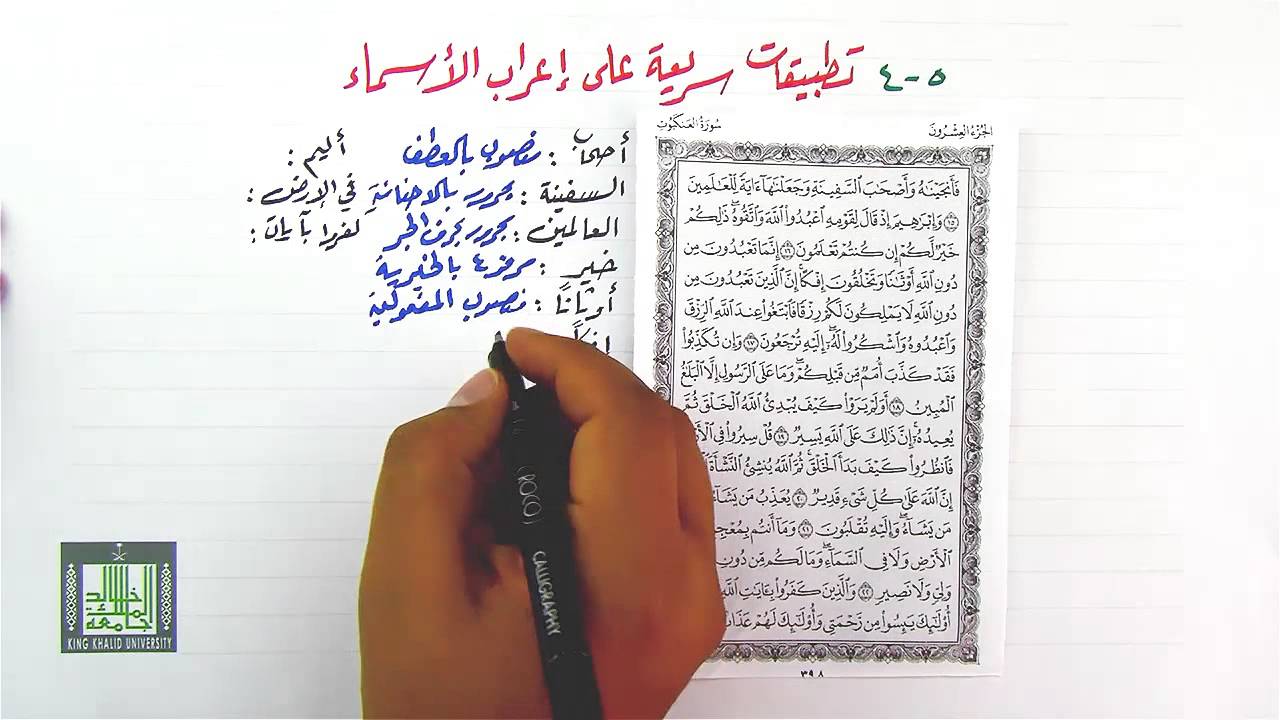 ٥-٤ تطبيقات سريعة على إعراب الأسماء
أصحاب : منصوب بالعطف
السفينة : مجرور بالاضافة
العالمين : مجرور بحرف الجر
خير : مرفوع بالخبرية
أوثانًا : منصوب المفعولية
إفكًا
أليم :
في الأرض :
كفروا بآيات :
الجزء العشرون
سورة العنكبوت
فَأَنجَيْنَٰهُ وَأَصْحَٰبَ السَّفِينَةِ وَجَعَلْنَٰهَآ ءَايَةً لِّلْعَٰلَمِينَ
﴿١٥﴾ وَإِبْرَٰهِيمَ إِذْ قَالَ لِقَوْمِهِ اعْبُدُوا۟ اللَّهَ وَاتَّقُوهُ ۖ ذَٰلِكُمْ
خَيْرٌ لَّكُمْ إِن كُنتُمْ تَعْلَمُونَ ﴿١٦﴾ إِنَّمَا تَعْبُدُونَ مِن
دُونِ اللَّهِ أَوْثَٰنًا وَتَخْلُقُونَ إِفْكًا ۚ إِنَّ الَّذِينَ تَعْبُدُونَ مِن
دُونِ اللَّهِ لَا يَمْلِكُونَ لَكُمْ رِزْقًا فَابْتَغُوا۟ عِندَ اللَّهِ الرِّزْقَ
وَاعْبُدُوهُ وَاشْكُرُوا۟ لَهُۥٓ ۖ إِلَيْهِ تُرْجَعُونَ ﴿١٧﴾ وَإِن تُكَذِّبُوا۟
فَقَدْ كَذَّبَ أُمَمٌ مِّن قَبْلِكُمْ ۖ وَمَا عَلَى الرَّسُولِ إِلَّا الْبَلَٰغُ
الْمُبِينُ ﴿١٨﴾ أَوَلَمْ يَرَوْا۟ كَيْفَ يُبْدِئُ اللَّهُ الْخَلْقَ ثُمَّ
يُعِيدُهُۥٓ ۚ إِنَّ ذَٰلِكَ عَلَى اللَّهِ يَسِيرٌ ﴿١٩﴾ قُلْ سِيرُوا۟ فِي
فَانظُرُوا۟ كَيْفَ بَدَأَ الْخَلْقَ ۚ ثُمَّ اللَّهُ يُنشِئُ النَّشْأَةَ
إِنَّ اللَّهَ عَلَىٰ كُلِّ شَىْءٍ قَدِيرٌ ﴿٢٠﴾ يُعَذِّبُ مَن يَشَآءُ
مَن يَشَآءُ ۖ وَإِلَيْهِ تُقْلَبُونَ ﴿٢١﴾ وَمَآ أَنتُم
الْأَرْضِ وَلَا فِي السَّمَآءِ ۖ وَمَا لَكُم مِّن دُونِ
وَلِيٍّ وَلَا نَصِيرٍ ﴿٢٢﴾ وَالَّذِينَ كَفَرُوا۟ بِـَٔايَٰتِ اللَّهِ
أُو۟لَٰٓئِكَ يَئِسُوا۟ مِن رَّحْمَتِي وَأُو۟لَٰٓئِكَ لَهُمْ
٣٩٨
(ROCO)
CALLIGRAPHY
جامعة
الملك
خالد
KING KHALID UNIVERSITY